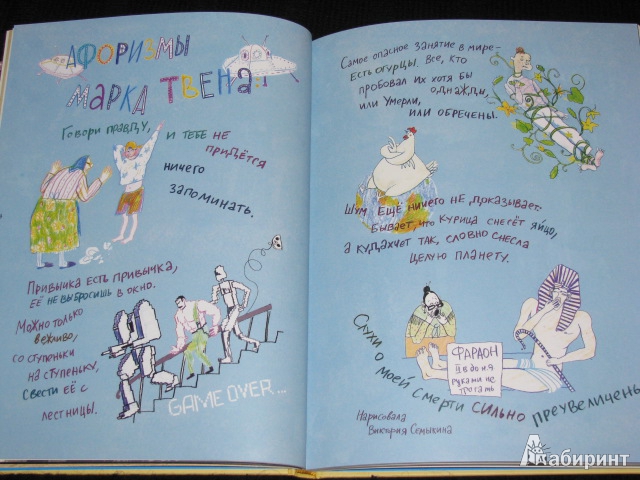 АФОРИЗМЫ
МАРКА ТВЕНА
Говори правду, и тебе не
придётся
ничего
запоминать.
Привычка есть привычка,
её не выбросишь в окно.
Можно только
вежливо,
со ступеньки
на ступеньку,
свести её с
лестницы.
GAME OVER...
Самое опасное занятие в мире-
есть огурцы. Все, кто
пробовал их хотя бы
однажды,
или умерли,
или обречены.
Шум ещё ничего не доказывает.
Бывает, что курица снесёт яйцо,
а кудахчет так, словно снесла
целую планету.
ФАРАОН
руками не
трогать
Слухи о моей смерти сильно преувеличены
Нарисовала
Виктория Семыкина
Лабиринт